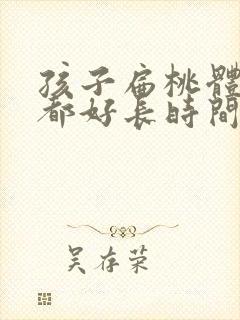 孩子扁桃體
都好長時間
吴存荣